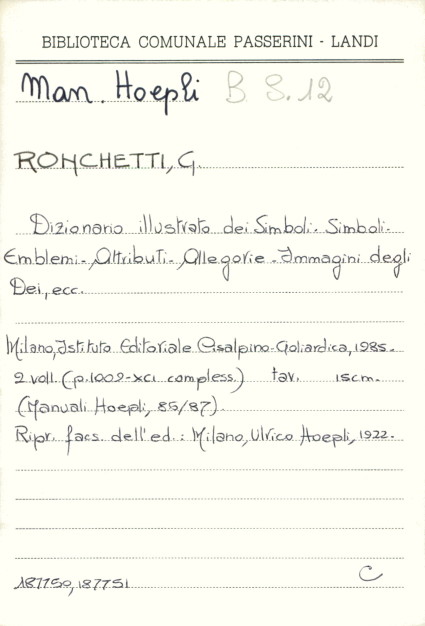 BIBLIOTECA COMUNALE PASSERINI - LANDI
Man. Hoepli B S.12
RONCHETTI, G.
Dizionario illustrato dei Simboli. Simboli-
Emblemi-Attributi-Allegorie-Immagini degli
Dei, ecc.
Milano, Istituto Editoriale Cisalpino-Goliardica, 1985.
2 voll. (p.1009-XCI compless.) tav. 15cm.
(Manuali Hoepli, 85/87).
Ripr. facs. dell'ed.: Milano, Ulrico Hoepli, 1922.
187750, 187751
C